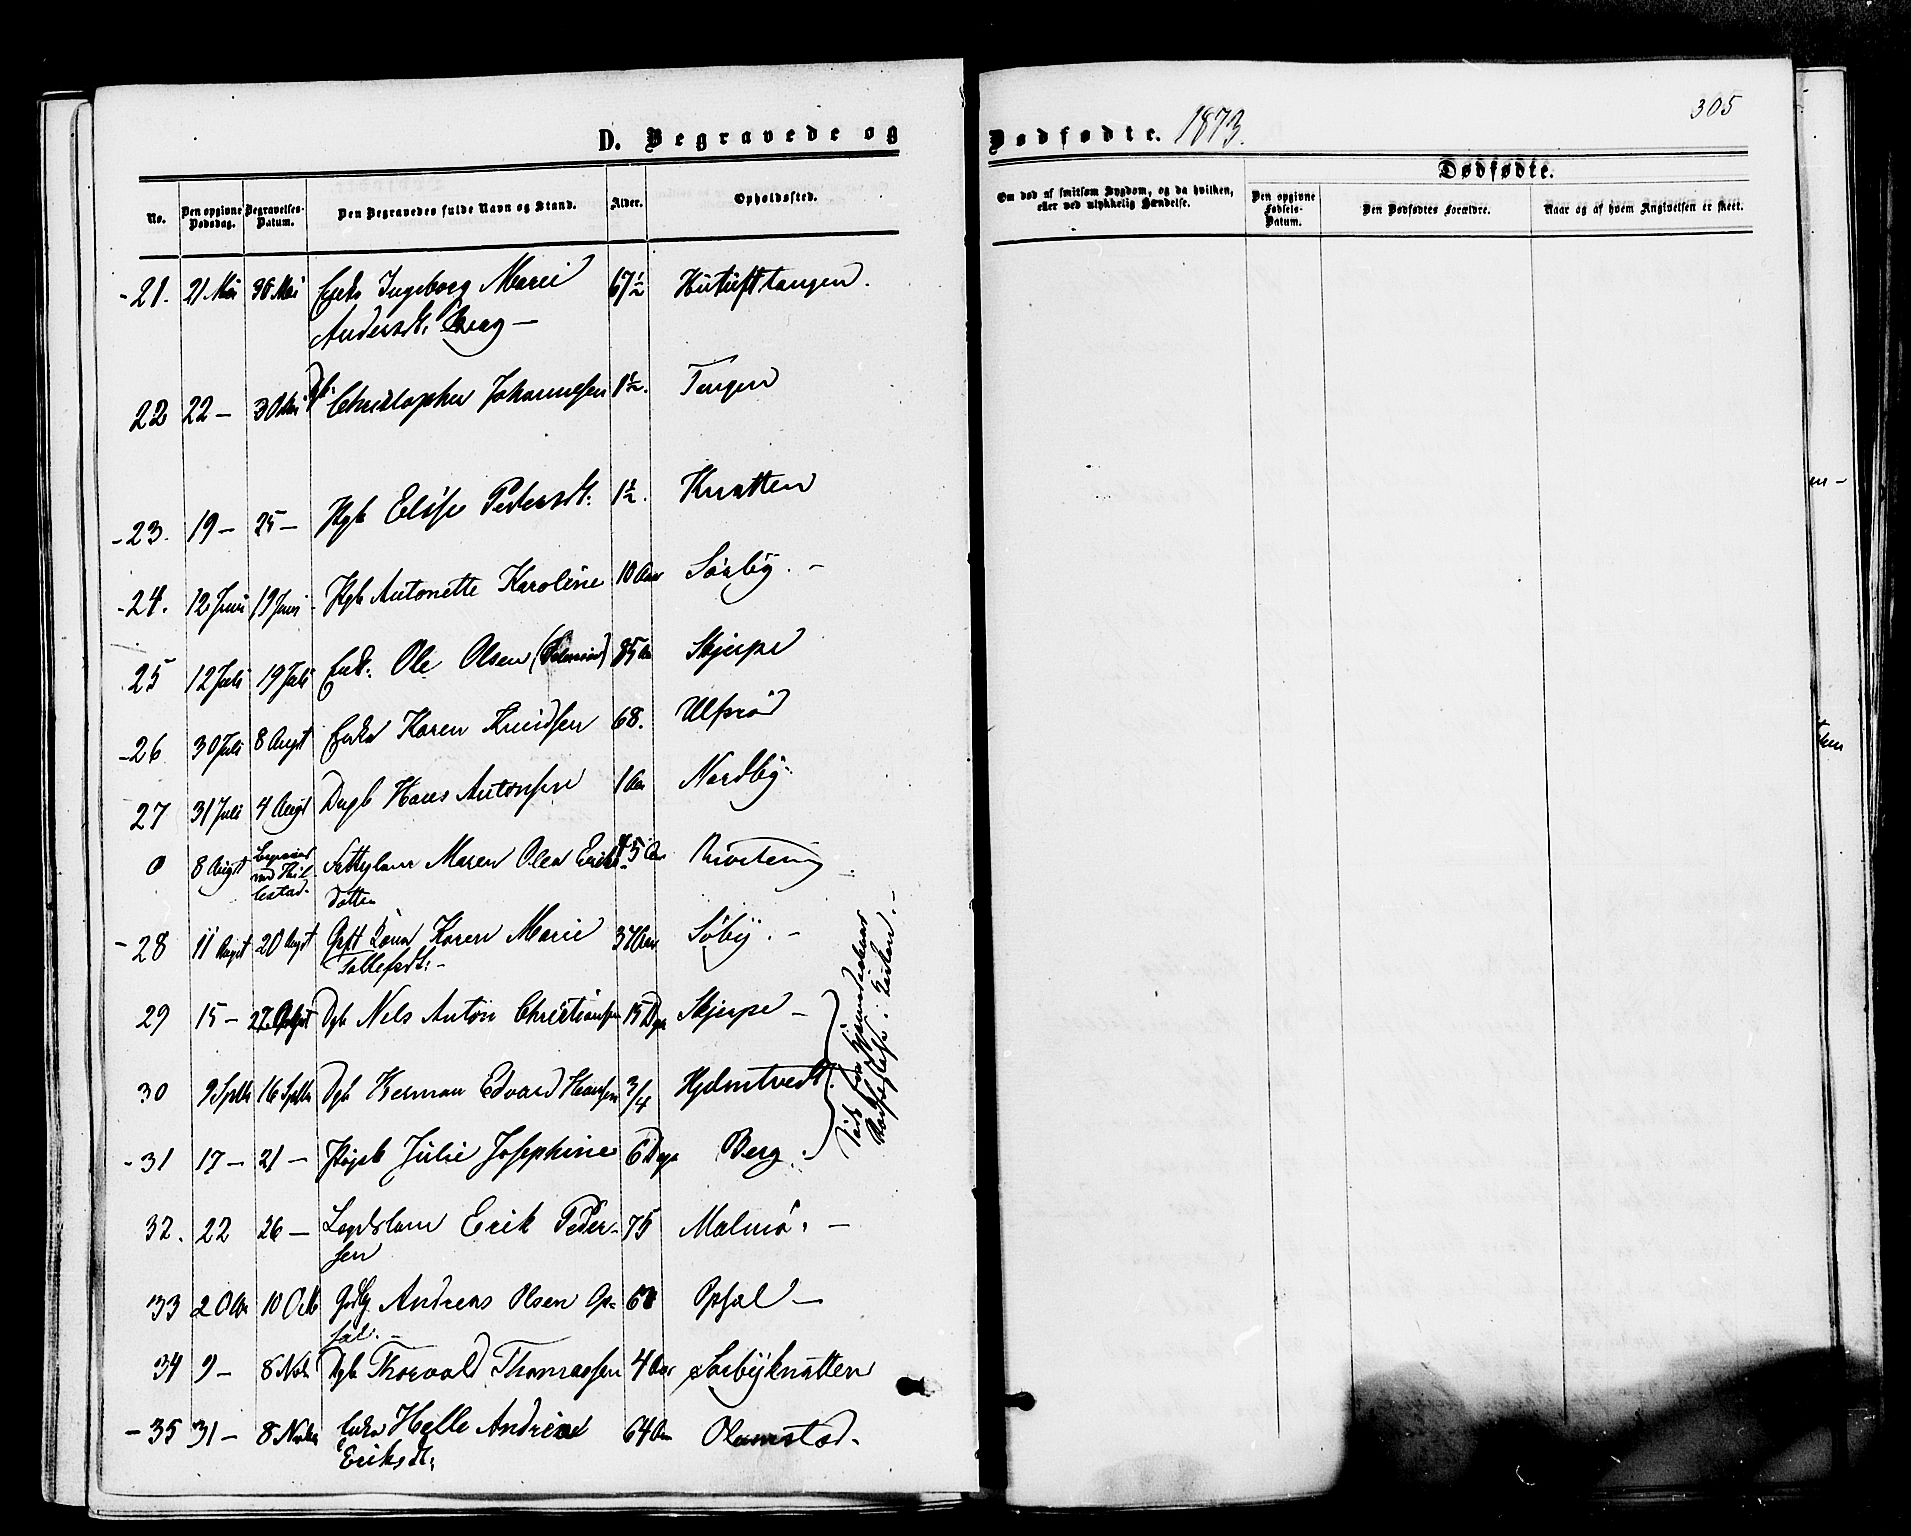 305
D. Begravede og Dødfødte. 1873.
No. Den opgivne Dødsdag. Begravelses-Datum. Den Begravedes fulde Navn og Stand. Alder. Opholdssted.
Om død af smitsom Sygdom, og da hvilken, eller ved ulykkelig Hændelse.
Dødfødte.
Den opgivne Fødsels-Datum. Den Dødfødtes Forældre. Naar og af hvem Angivelsen er skeet.
21. 21 Mai 30 Mai Enke Ingeborg Marie 67½
Andersdt. Berg —
22 22 — 30 Mai Christopher Johannesen 1½. Tangen
23. 19 — 25 — Pgb Elise Pedersdt. 1½. Knatten
24. 12 Juni 19 Juni Pgb Antonette Karoline 10 Aar Sørby. —
25 12 Juli 19 Juli Enk. Ole Olsen 85 Aar Skjerpe
26 30 Juli 8 Augst Enke Karen Knudsen 68. Ulfsrød
27 31 Juli 4 Augst Dgb Hans Antonsen 1 Aar Nordby
0 8 Augst Maren Olea Eriks 5 Aar
datter
28 11 Augst 20 Augst Gift Kona Karen Marie 37 Aar Søby. —
Tollefsdt. —
29 15 — 27 Augst Dgb Nels Anton Christiansen 15 Dge Skjerpe —
30 9 Septbr 16 Septbr Dgb Herman Edvard Hansen 3/4 Hjelmtvedt.
31 17 — 21 — Pigeb Julie Josephine 6 Dage Berg.
32. 22 26 — Lægdslem Erik Peder- 75 Malmö. —
sen
33 2 Octbr 10 Octb Grdbg Andreas Olsen Op- Opsal —
sal. —
34 9 — 8 Novbr Dgb Thorvald Thomassen 4 Aar Sørbyknatten
35 31 — 8 Novbr Enke Helle Andrea 64 Aar Olumstad.
Eriksdt.